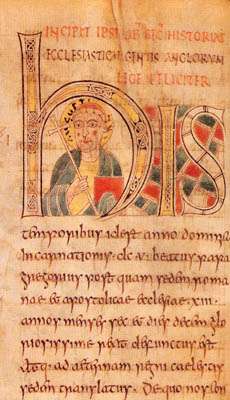 INCIPIT HISTORIAE
ECCLESIASTICAE GENTIS ANGLORUM
FELICITER
his
temporibus id est anno dominicae
incarnationis dc v beatus papa
gregorius postquam sedem roma
nae & apostolicae ecclesiae xiii
annos menses sex & dies decem glo
riosissime rexit defunctus est
atq; ad aeternam regni caelestis
sedem translatus. De quo nos con